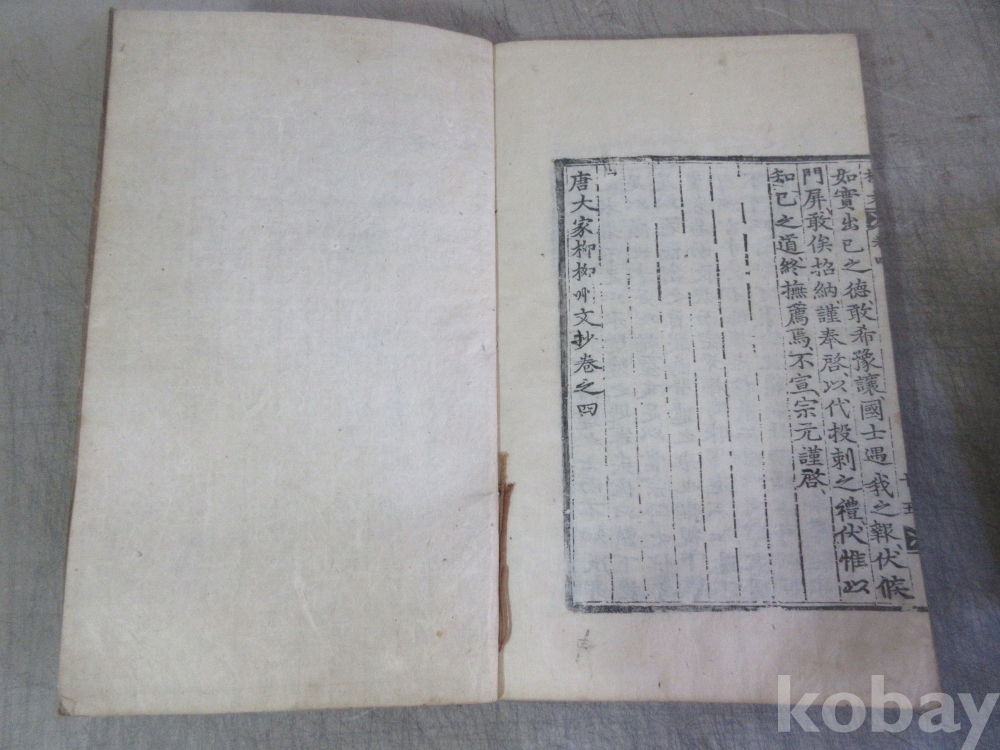 如實出已之德敢希豫讓國士遇我之報伏候
門屏敢俟招納謹奉啓以代投刺之禮伏惟以
知已之道終撫薦焉不宣宗元謹啓
唐大家柳柳州文抄卷之四
kobay